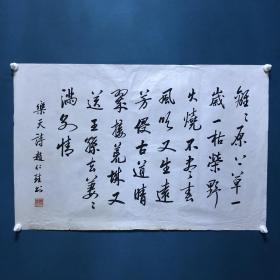 離〻原上草一
歲一枯榮野
火燒不盡春
風吹又生遠
芳侵古道晴
翠接荒城又
送王孫去萋〻
滿別情
樂天詩 趙仁珪書